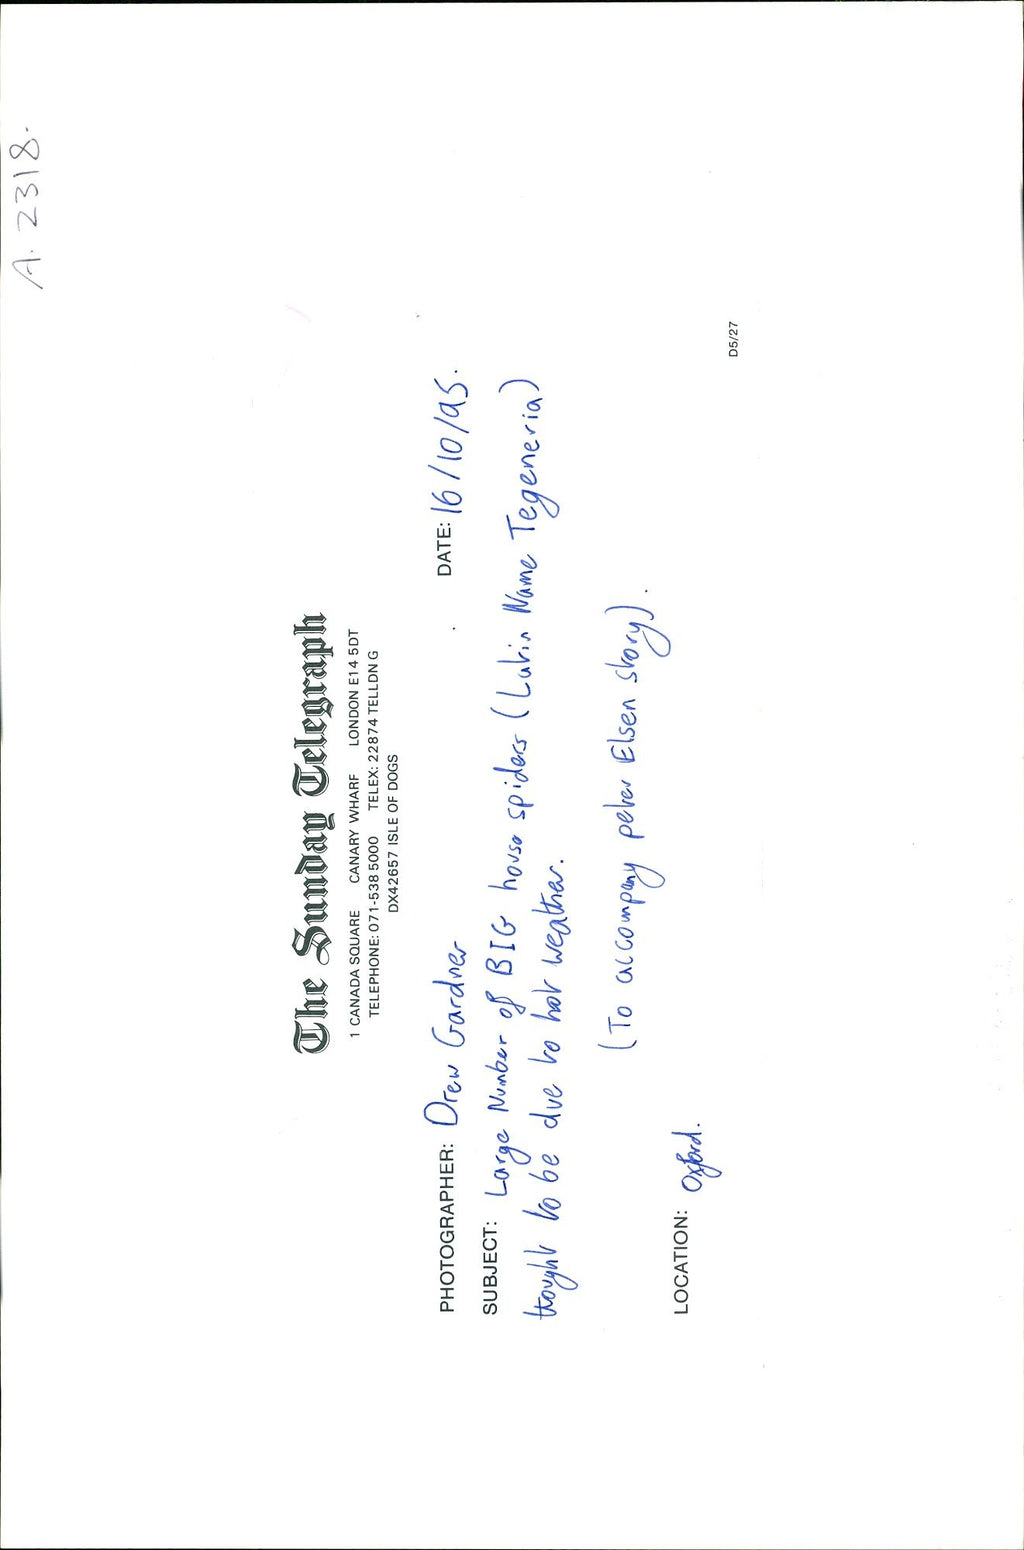 A. 2318.
The Sunday Telegraph
1 CANADA SQUARE CANARY WHARF LONDON E14 5DT
TELEPHONE: 071-538 5000 TELEX: 22874 TELLDN G
DX42657 ISLE OF DOGS
PHOTOGRAPHER: Drew Gardner DATE: 16/10/95.
SUBJECT: Large Number of BIG house spiders (Latin Name Tegeneria)
thought to be due to hot weather.
(To accompany peter Elsen story).
LOCATION: Oxford.
D5/27